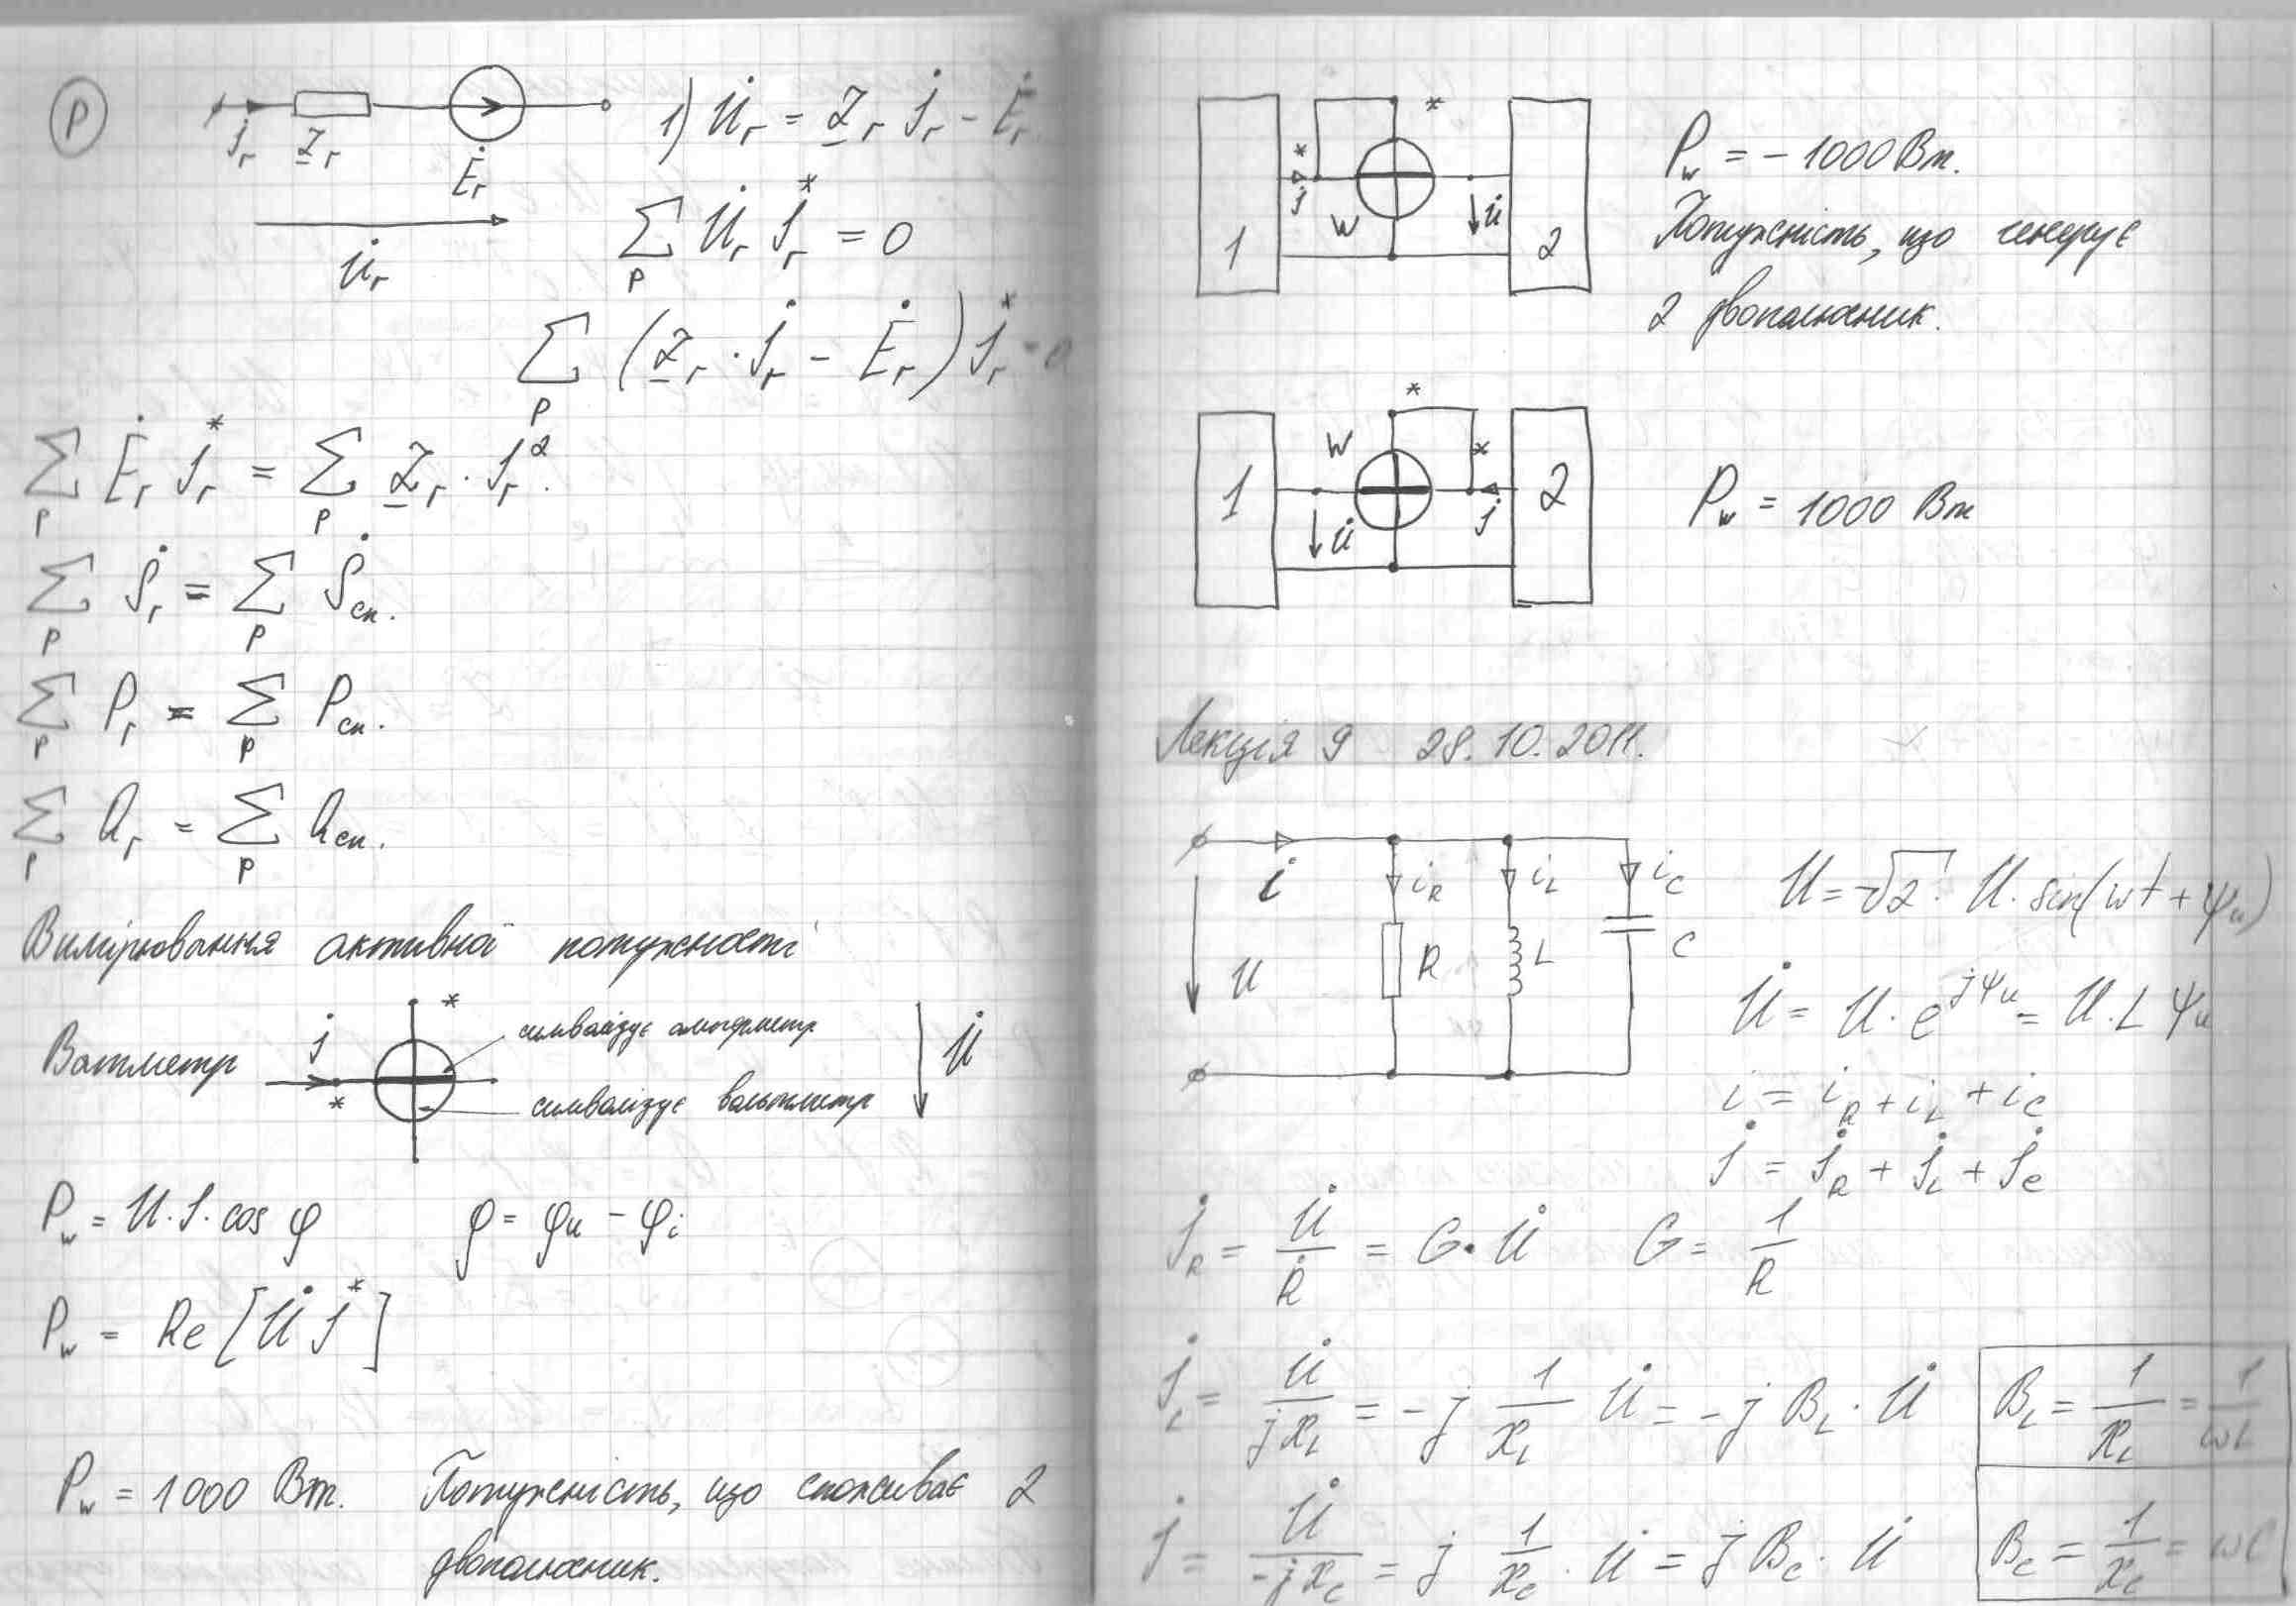 P
İr Zr Ėr
1) U̇r = Zr İr - Ėr
U̇r
∑p U̇r I*r = 0
∑p (Zr · İr - Ėr) I*r = 0
∑p Ėr I*r = ∑p Zr · Ir².
∑p Ṡr = ∑p Ṡсп.
∑p Pr = ∑p Pсп.
∑p Qr = ∑p Qсп.
Вимірювання активної потужності
Ватметр İ * * символізує амперметр U̇
символізує вольтметр
Pw = U·I·cos φ φ = φu - φi
Pw = Re [U̇ I*]
Pw = 1000 Вт. Потужність, що споживає 2
двополюсник.
1 * İ W * U̇ 2
Pw = - 1000 Вт.
Потужність, що генерує
2 двополюсник.
1 W * * U̇ İ 2
Pw = 1000 Вт
Лекція 9 28.10.2011.
i iR iL iC
U R L C
U = √2 · U · sin(ωt + ψu)
U̇ = U · e^jψu = U · ∠ ψu
i = iR + iL + iC
İ = İR + İL + İC
İR = U̇/R = G · U̇ G = 1/R
İL = U̇/jxL = -j 1/xL U̇ = -j BL · U̇ BL = 1/xL = 1/ωL
İ = U̇/-jxC = j 1/xC · U̇ = j BC · U̇ BC = 1/xC = ωC